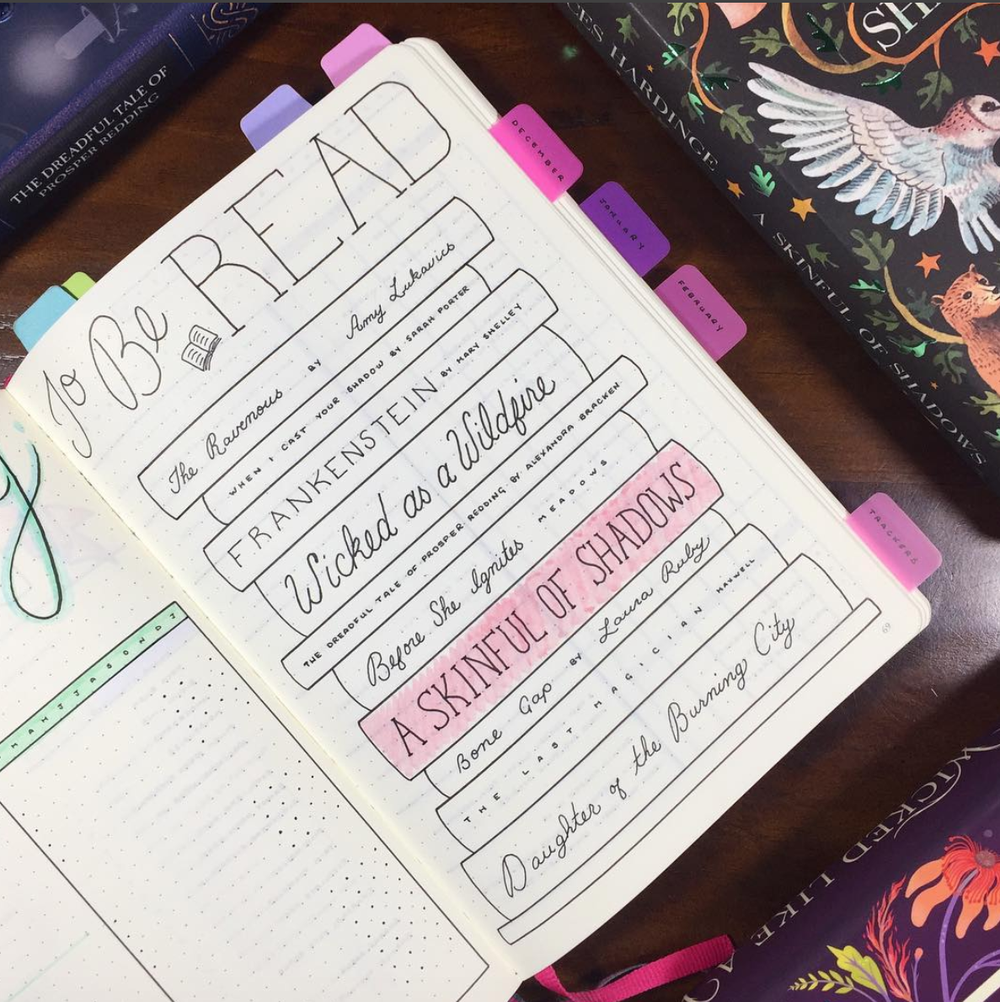 THE DREADFUL TALE OF
PROSPER REDDING
To Be READ
The Ravenous BY Amy Lukavics
WHEN I CAST YOUR SHADOW BY SARAH PORTER
FRANKENSTEIN BY MARY SHELLEY
Wicked as a Wildfire
THE DREADFUL TALE OF PROSPER REDDING BY ALEXANDRA BRACKEN
Before She Ignites MEADOWS
A SKINFUL OF SHADOWS
Bone Gap BY Laura Ruby
THE LAST MAGICIAN MAXWELL
Daughter of the Burning City
69
DECEMBER
JANUARY
FEBRUARY
TRACKERS
M A M J J A S O N D J
HARDINGE
A SKINFUL OF SHADOWS
SH
WICKED LIKE